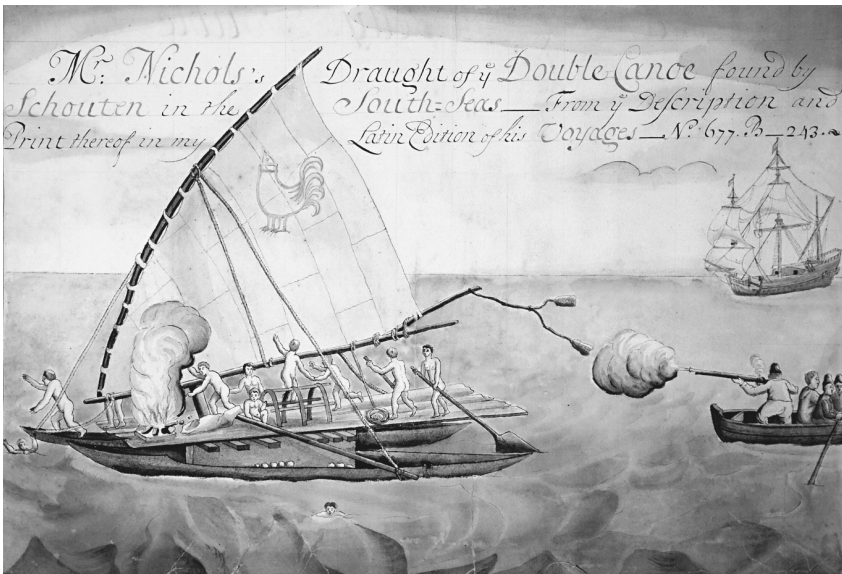 Mr: Nichols's Draught of ye Double Canoe found by
Schouten in the South=Seas — From ye Description and
Print thereof in my Latin Edition of his Voyages — No. 677. B — 243.